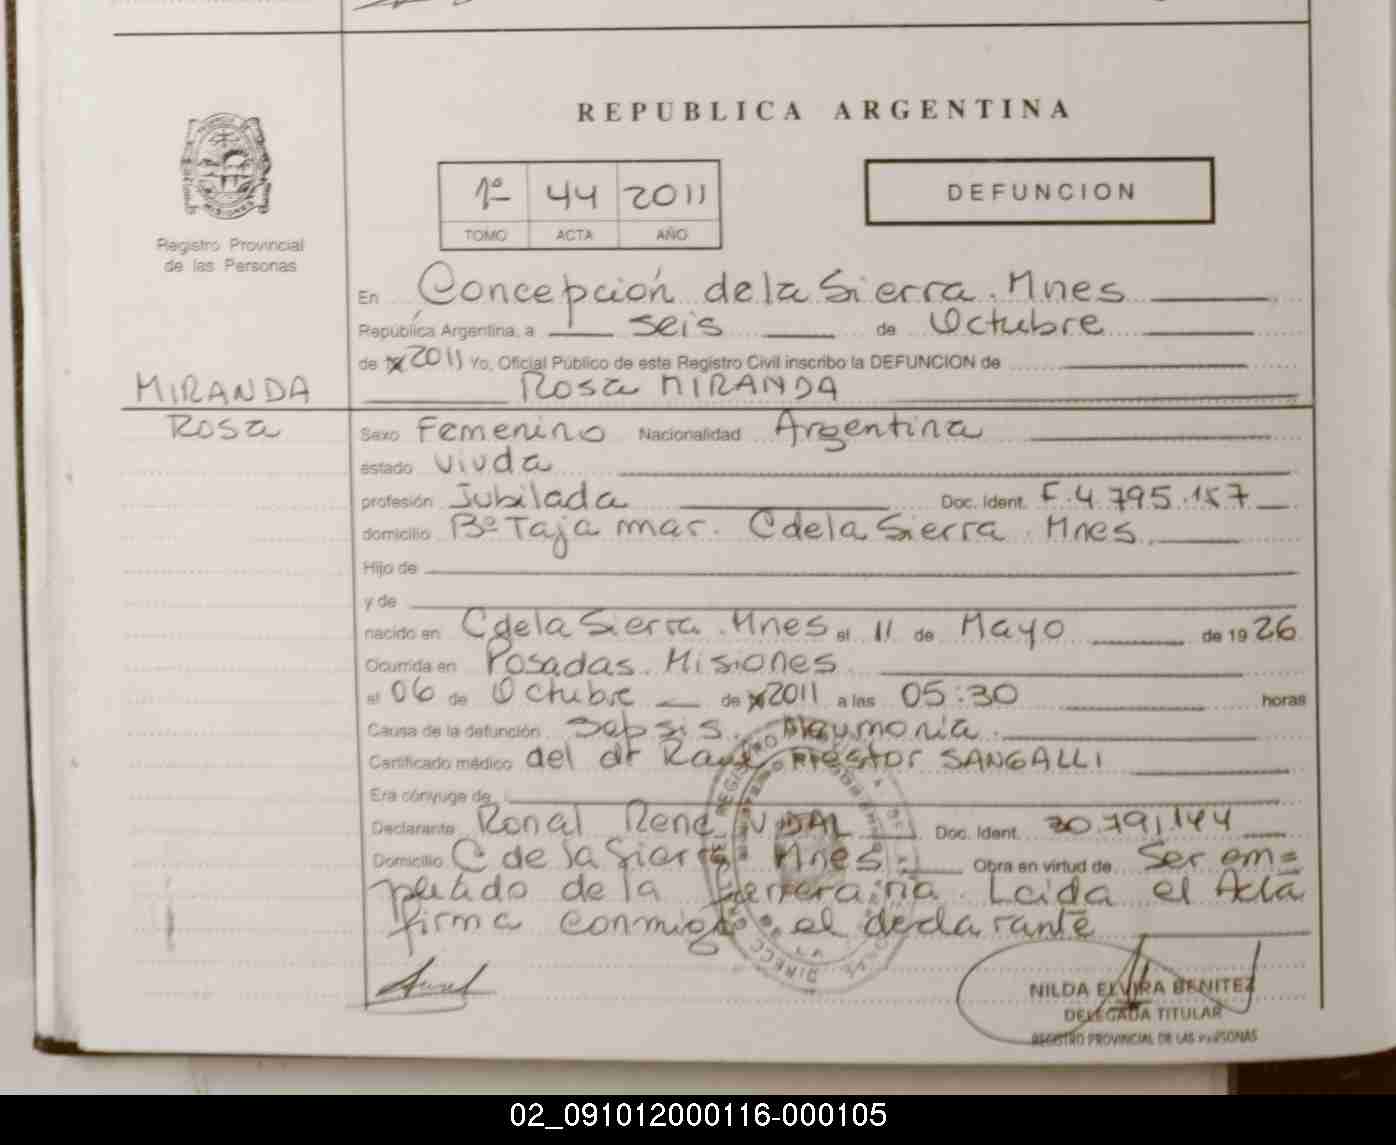 REPUBLICA ARGENTINA
1º 44 2011
TOMO ACTA AÑO
DEFUNCION
Registro Provincial
de las Personas
En Concepción de la Sierra. Mnes
República Argentina, a seis de Octubre
de 2011 Yo, Oficial Público de este Registro Civil inscribo la DEFUNCION de
MIRANDA
Rosa
Rosa MIRANDA
Sexo Femenino Nacionalidad Argentina
estado Viuda
profesión Jubilada Doc. Ident. F. 4.795.157
domicilio Bº Tajamar. C de la Sierra. Mnes.
Hijo de
y de
nacido en C de la Sierra. Mnes el 11 de Mayo de 19 26
Ocurrida en Posadas. Misiones
el 06 de Octubre de 2011 a las 05:30 horas
Causa de la defunción Sepsis. Neumonia.
Certificado médico del dr Raul Nestor SANGALLI
Era cónyuge de
Declarante Ronal Rene VIDAL Doc. Ident. 30.791.144
Domicilio C de la Sierra Mnes. Obra en virtud de Ser em=
pleado de la funeraria. Leida el Acta
firma conmigo el declarante
NILDA ELVIRA BENITEZ
DELEGADA TITULAR
REGISTRO PROVINCIAL DE LAS PERSONAS
02_091012000116-000105